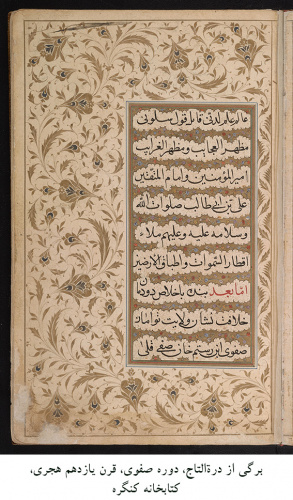 عالم علم لدنی قایل قول سلونی
مظهر العجایب و مظهر الغرایب
امیرالمؤمنین و امام المتقین
علی بن ابی طالب صلوات الله
وسلامه علیه وعلیهم ملاء
اقطار السموات و اطباق الارضین
اما بعد بنده با خلاص دودمان
خلافت نشان ولایت توامان
صفوی ابن رستم خان صفی قلی
برگی از درةالتاج، دوره صفوی، قرن یازدهم هجری،
کتابخانه کنگره